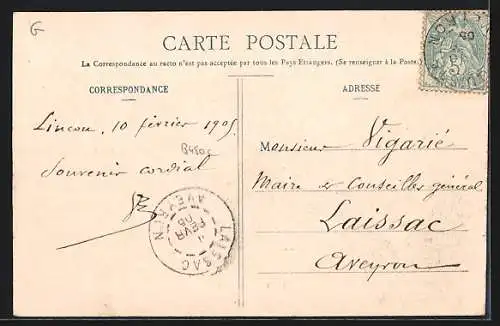 G
CARTE POSTALE
La Correspondance au recto n'est pas acceptée par tous les Pays Etrangers. (Se renseigner à la Poste.)
CORRESPONDANCE
ADRESSE
Lincou, 10 février 1905
Souvenir cordial
Monsieur Vigarié
Maire & Conseiller général
Laissac
Aveyron
LAISSAC
AVEYRON
11
FEVR
05